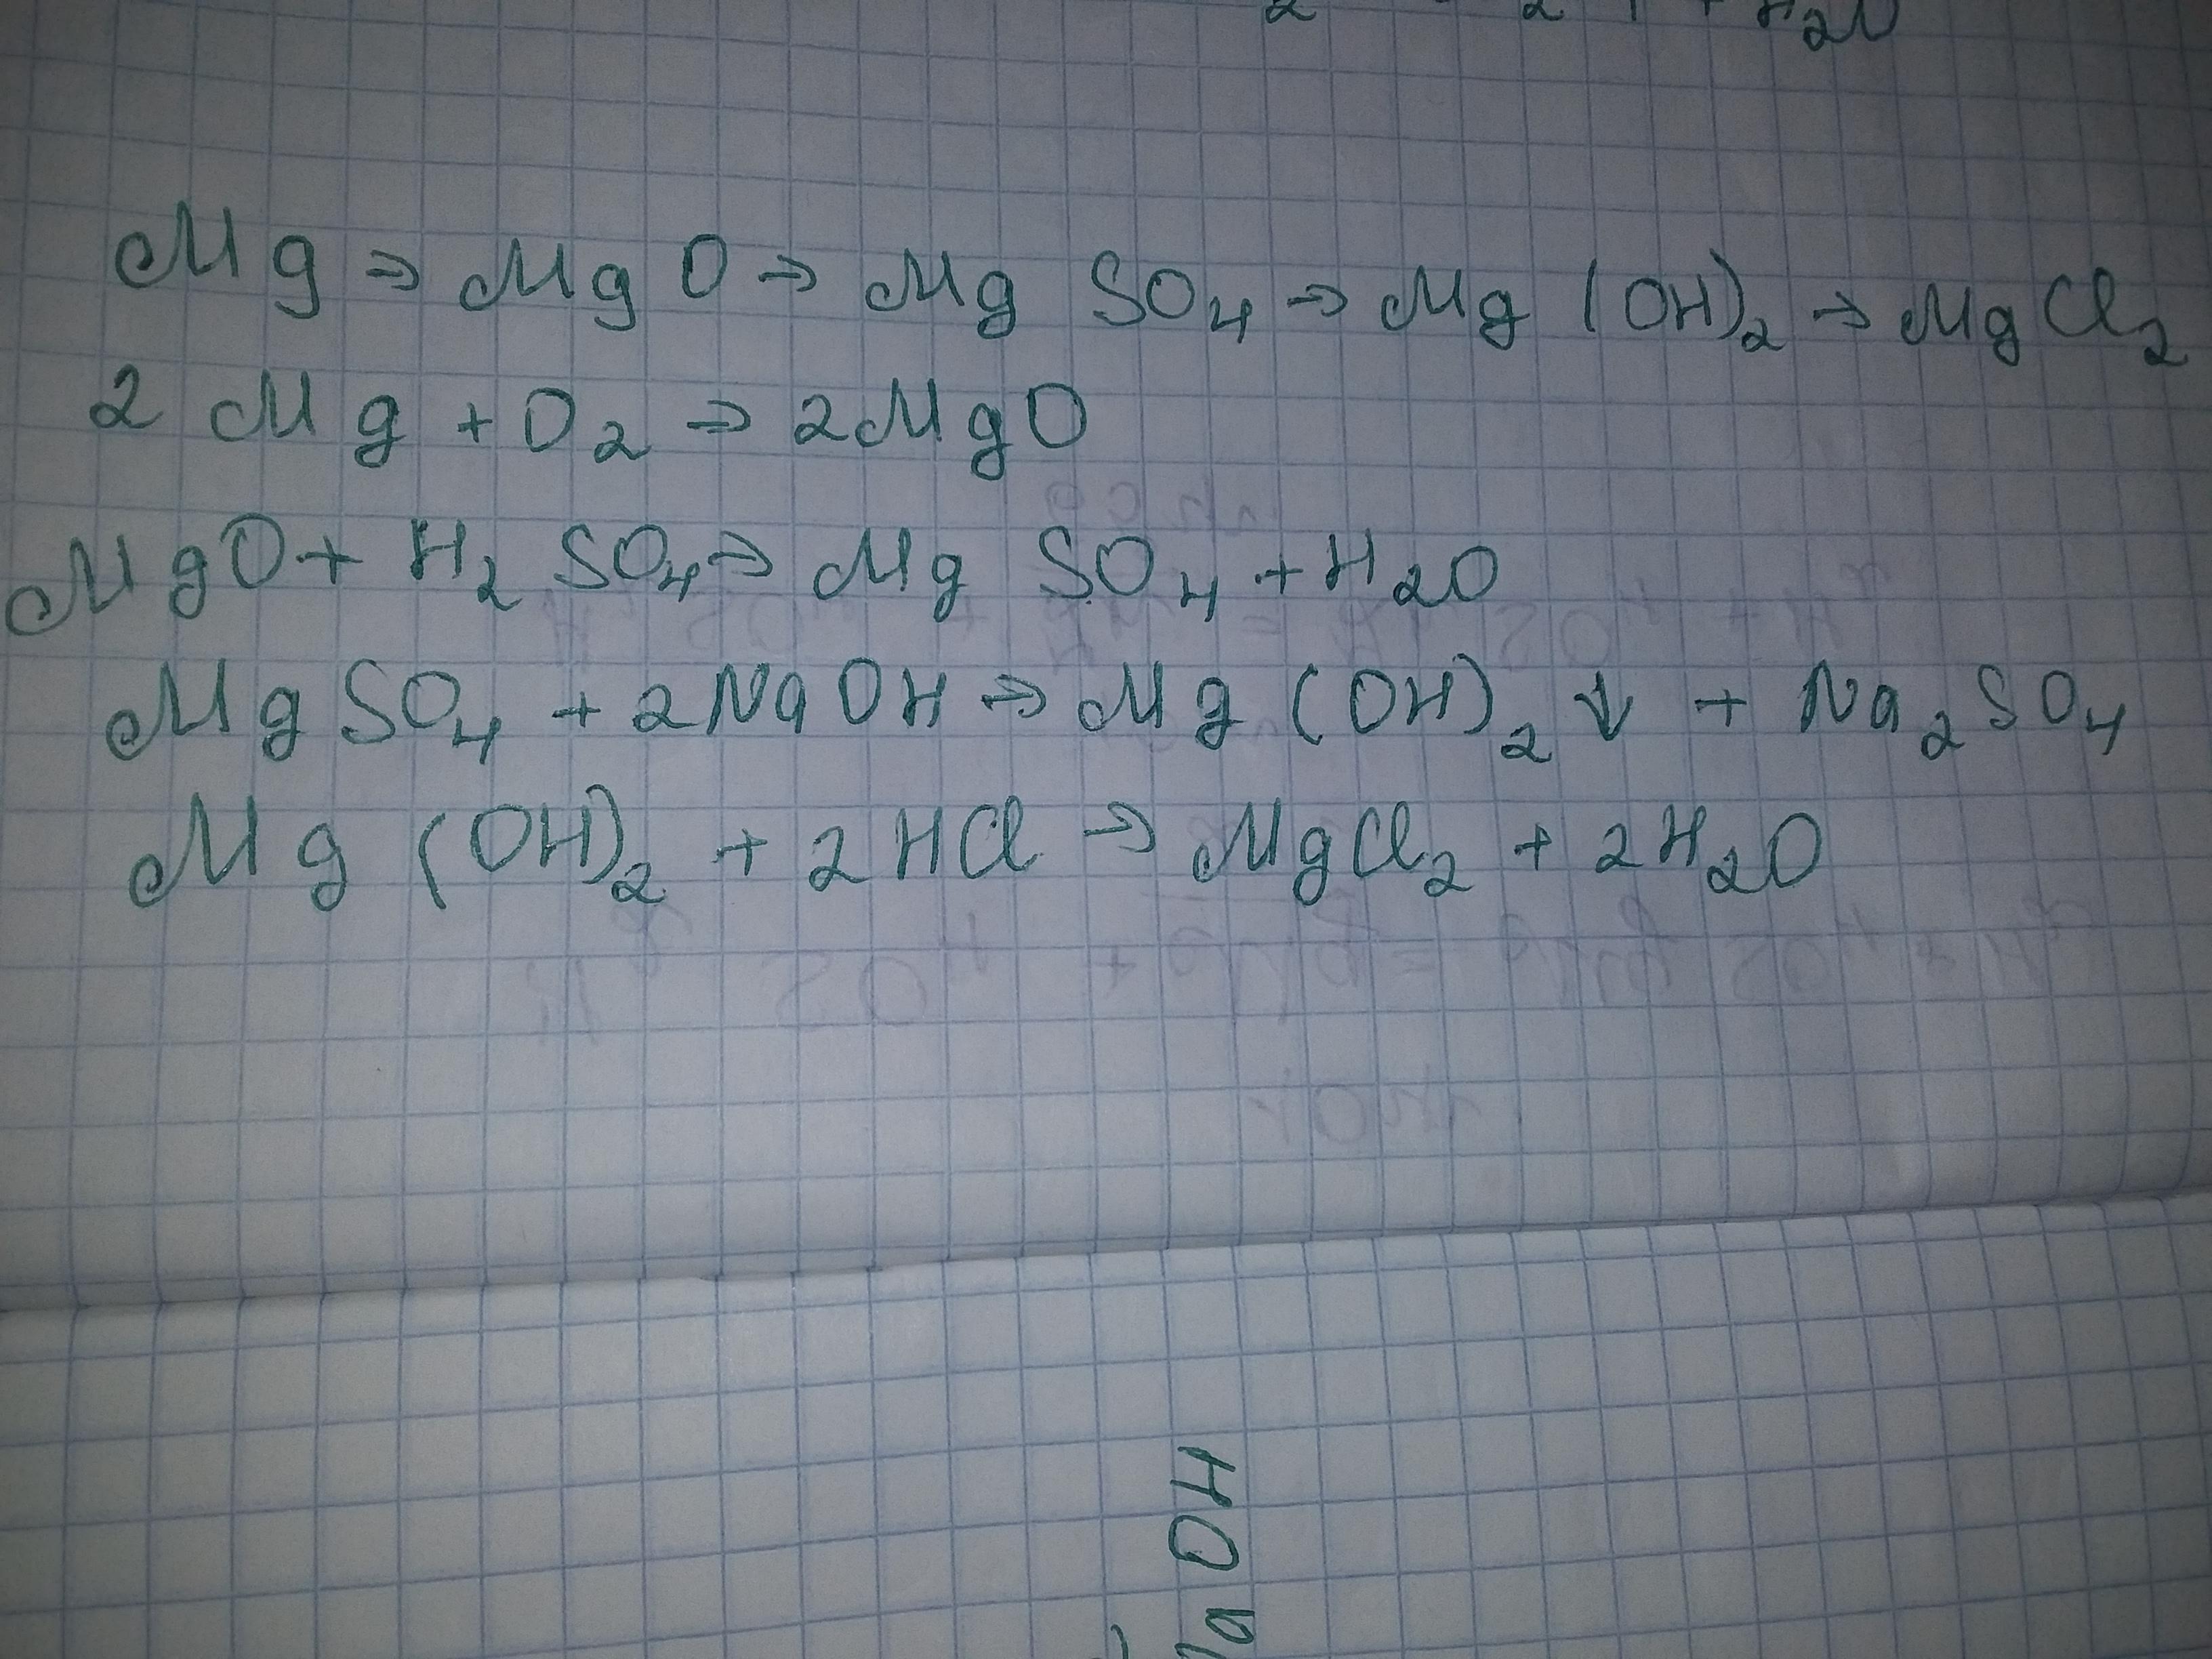 + H₂O
Mg → MgO → MgSO₄ → Mg(OH)₂ → MgCl₂
2Mg + O₂ → 2MgO
MgO + H₂SO₄ → MgSO₄ + H₂O
MgSO₄ + 2NaOH → Mg(OH)₂ ↓ + Na₂SO₄
Mg(OH)₂ + 2HCl → MgCl₂ + 2H₂O